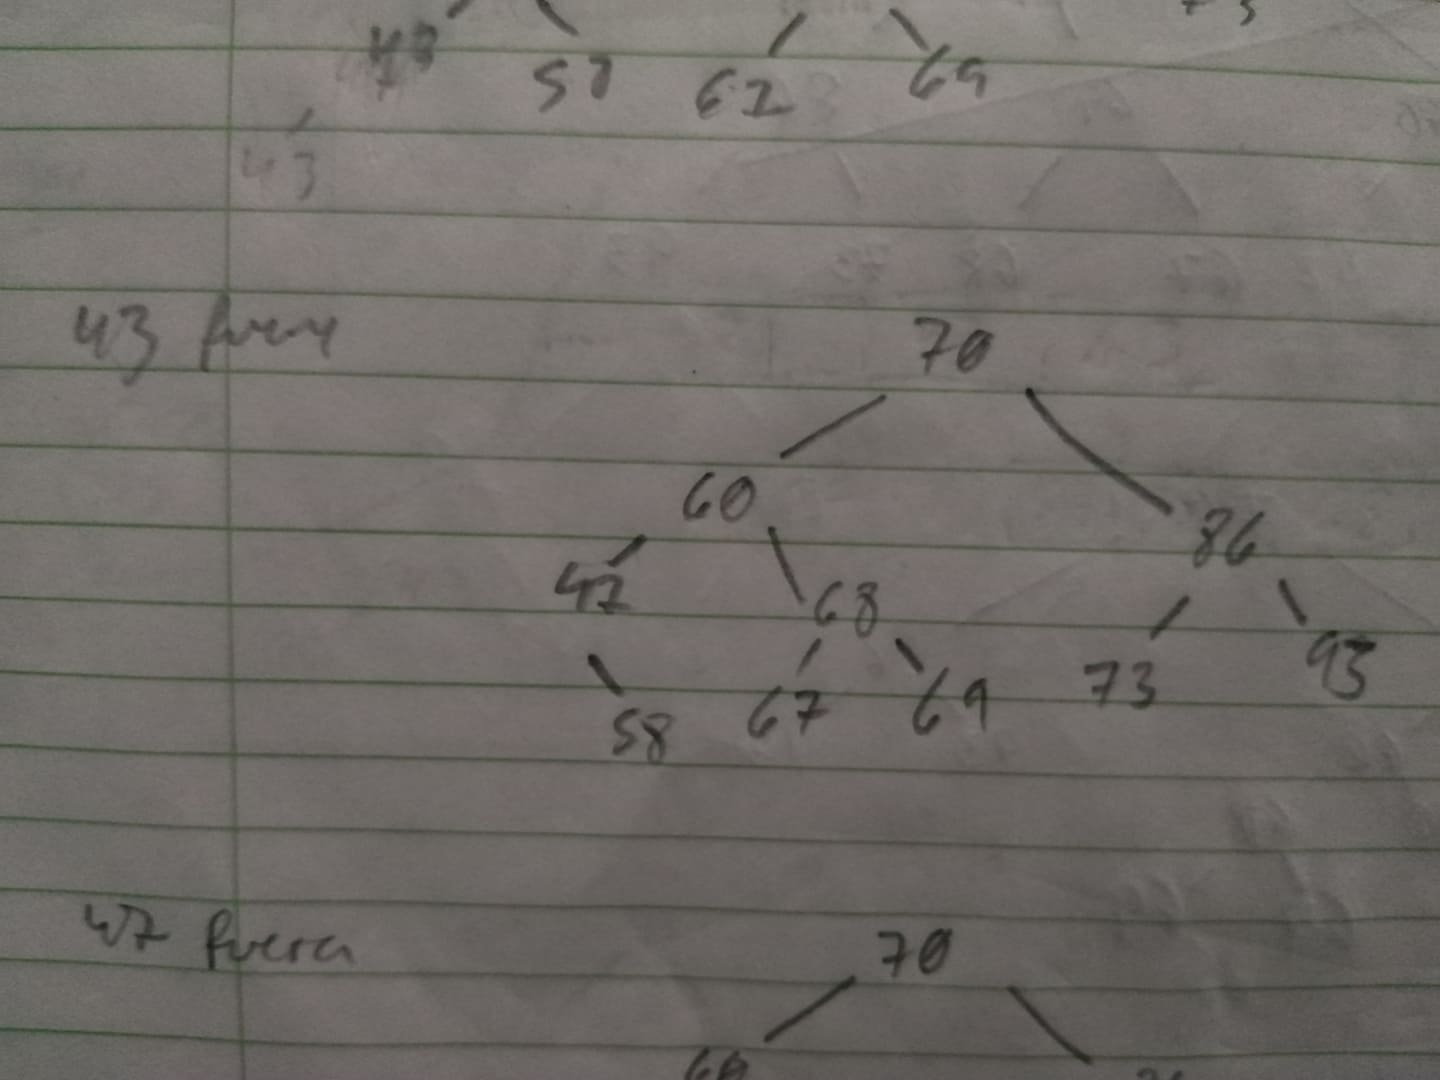 58 62 69
43
43 fuera
70
60
86
47
68
73 93
58 67 69
47 fuera
70
60